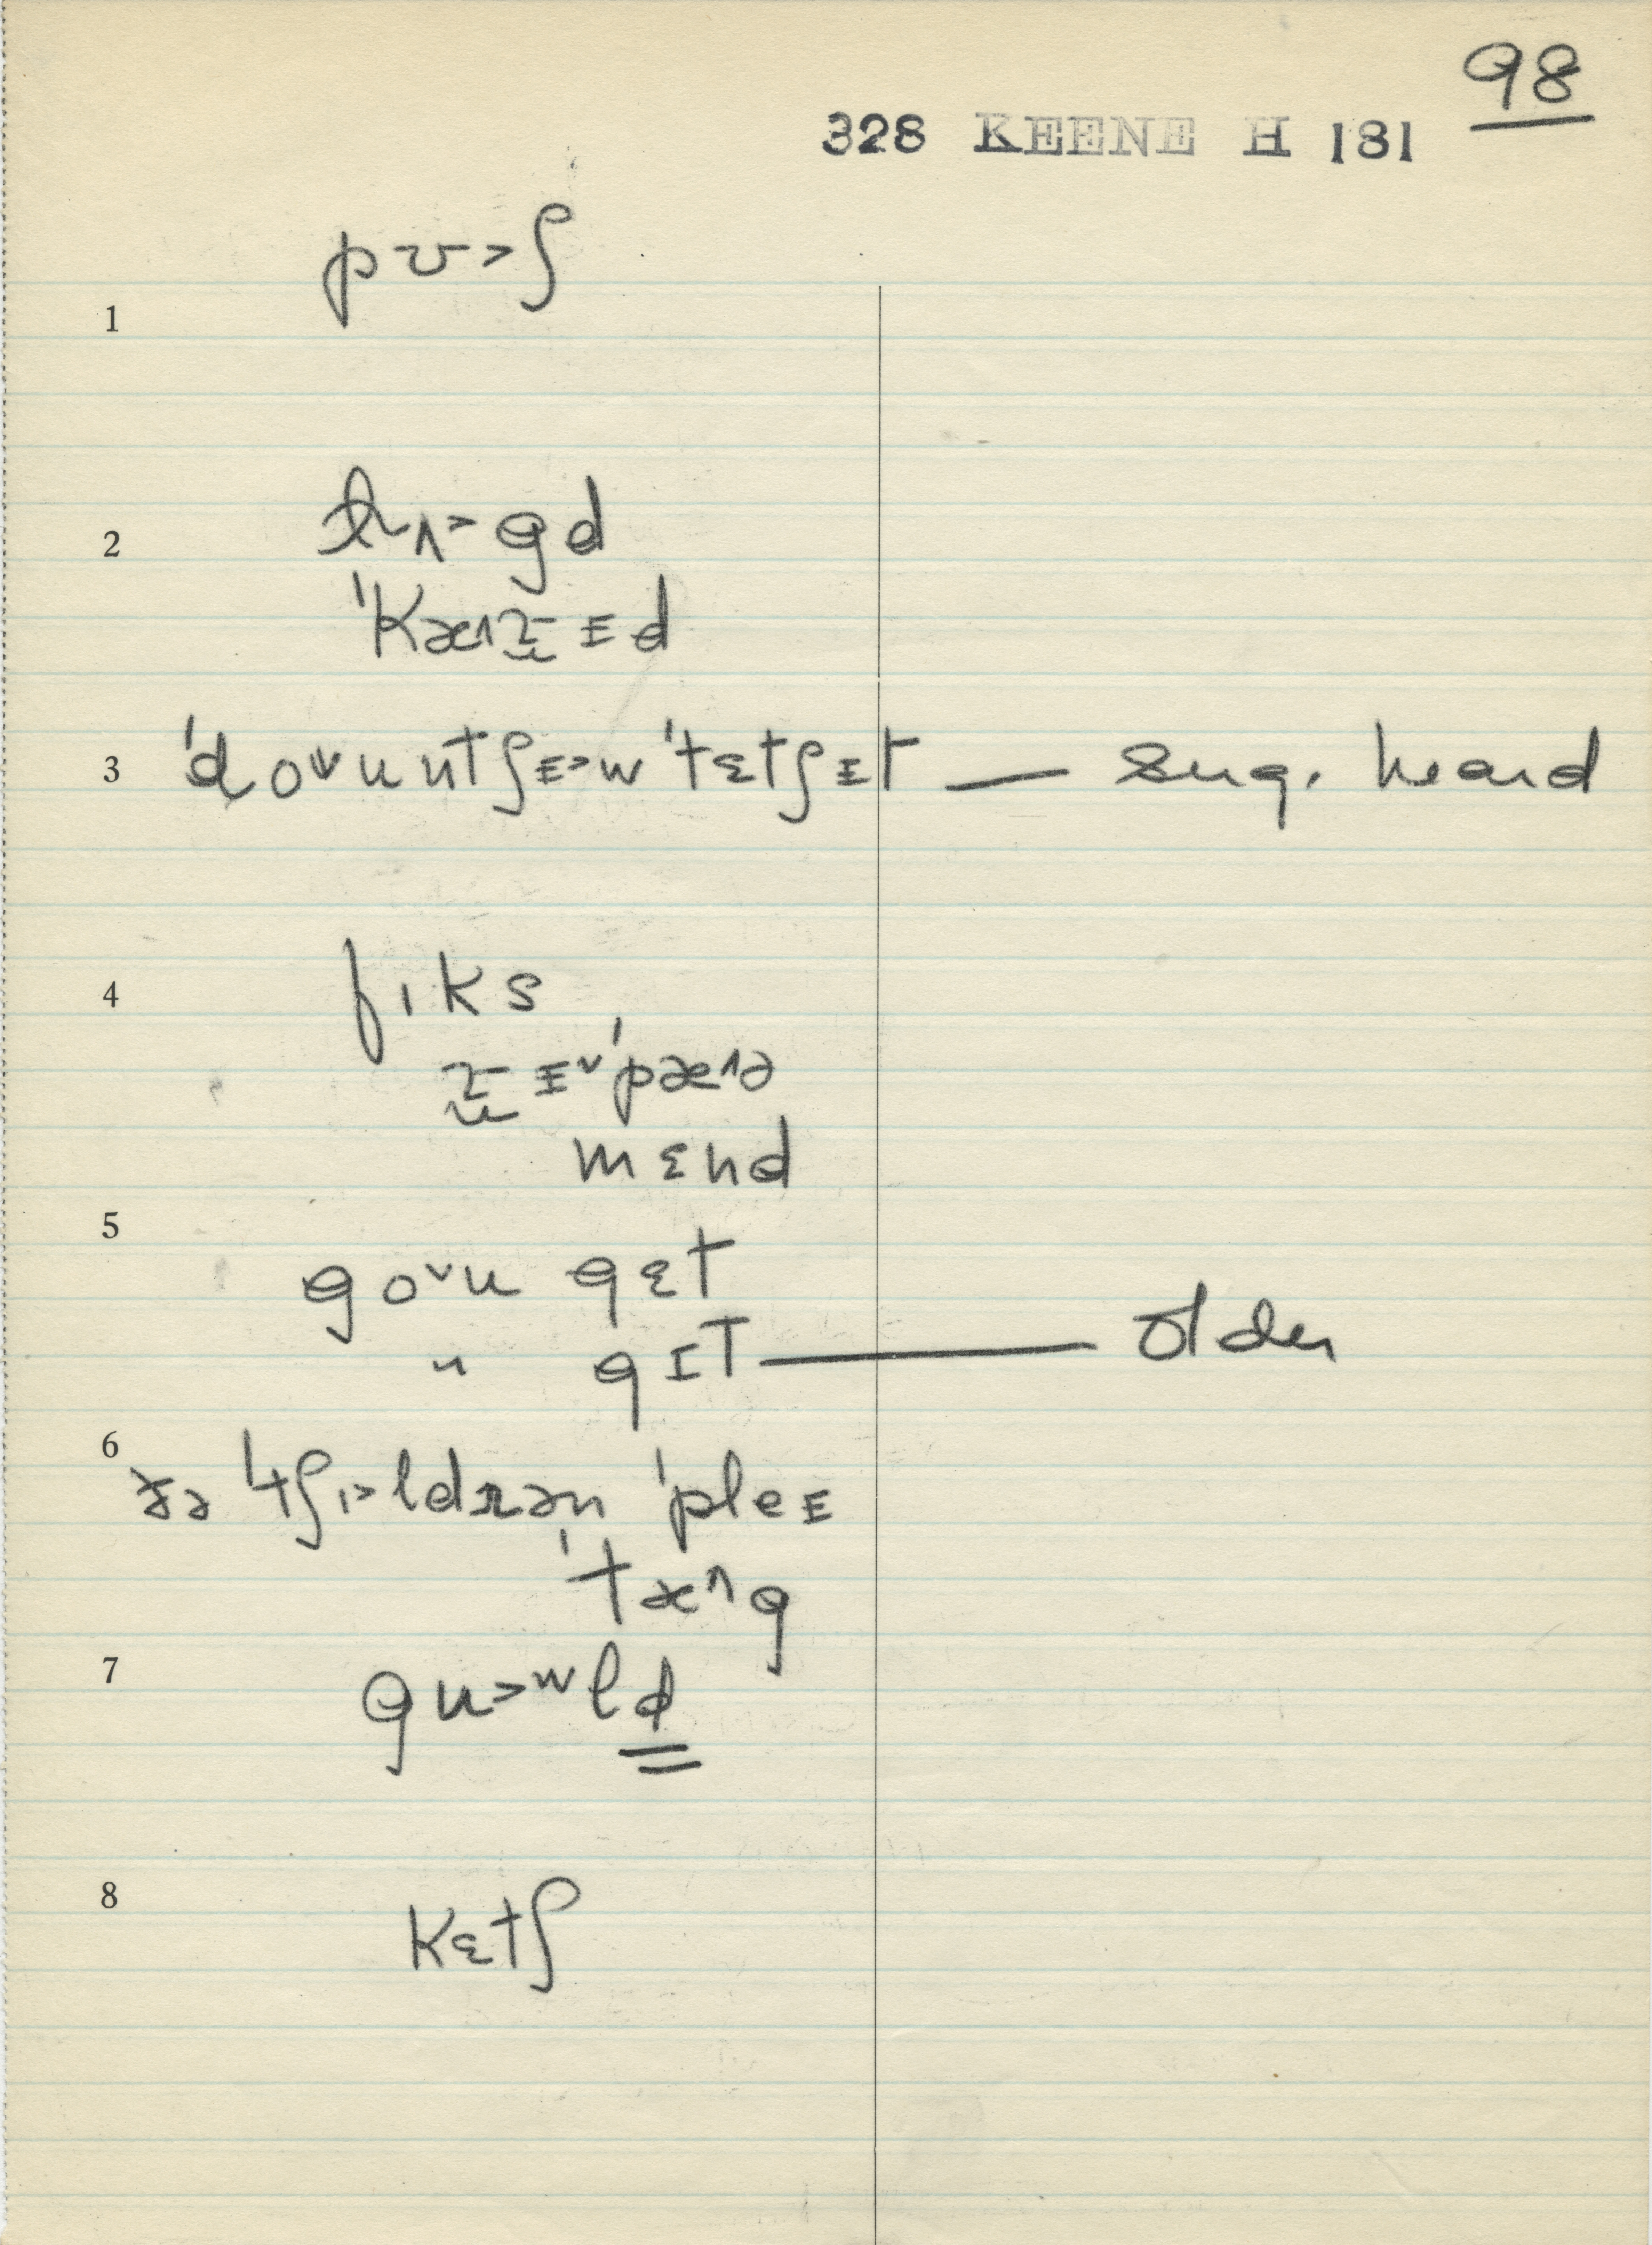 98
328 KEENE H 181
1 pʊ>ʃ
2 lʌ>gd
ˈkæ^rɪd
3 ˈdoᵛuntʃɪ>w ˈtɛtʃɪt — sug. heard
4 fɪks
rɪᵛˈpæ^ə
mɛnd
5 goᵛu gɛt
" gɪt — older
6 ðə ˈtʃɪ>ldrən ˈpleɪ
ˈtæ^g
7 gu>ʷld
8 kɛtʃ